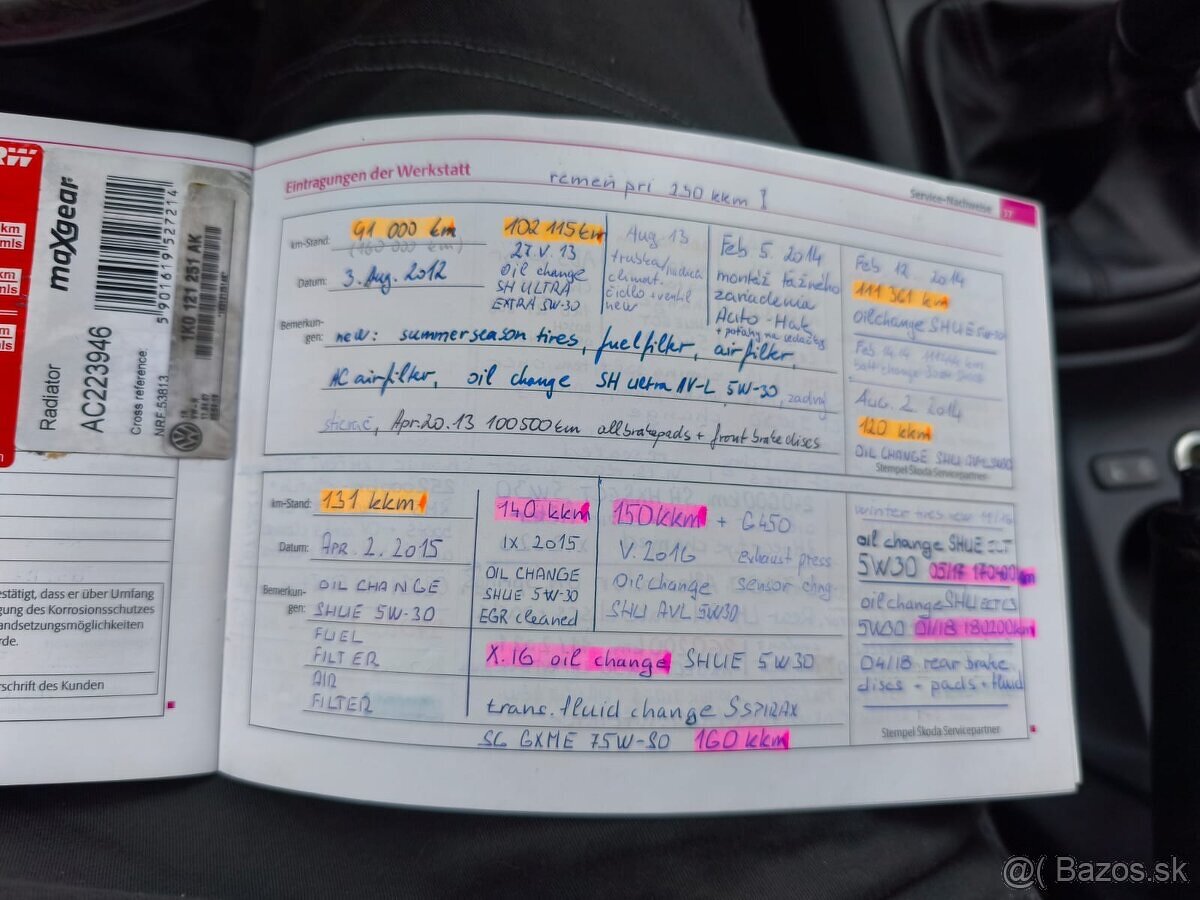 RW
km
mls
km
mls
mls
maxgear
5 901619 527214
Radiator
AC223946
Cross reference:
NRF 53813
1K0 121 251 AK
estätigt, dass er über Umfang
gung des Korrosionsschutzes
andsetzungsmöglichkeiten
rde.
erschrift des Kunden
Eintragungen der Werkstatt
remeň pri 230 kkm !
Service-Nachweise
km-Stand:
91 000 km
(160 000 km)
Datum:
3. Aug. 2012
102 115 km
27. V. 13
oil change
SH ULTRA
EXTRA 5W-30
Aug 13
climat.
čidlo + ventil
new
Feb 5. 2014
montáž ťažného
zariadenia
Auto-Hak
+ poťahy na sedačky
Feb 12. 2014
111 361 km
oil change SHUE 5W-30
Aug. 2. 2014
120 kkm
OIL CHANGE SHU AVL 5W30
Stempel Škoda Servicepartner
Bemerkun-
gen:
new: summer season tires, fuel filter, air filter,
AC air filter, oil change SH ultra AV-L 5W-30, zadný
stierač, Apr. 20. 13 100500 km all brake pads + front brake discs
km-Stand:
131 kkm
Datum:
APR. 2. 2015
Bemerkun-
gen:
OIL CHANGE
SHUE 5W-30
FUEL
FILTER
AIR
FILTER
140 kkm
IX. 2015
OIL CHANGE
SHUE 5W-30
EGR cleaned
150 kkm + G450
V. 2016 exhaust press
Oil change sensor chng.
SHU AVL 5W30
X. 16 oil change SHUE 5W30
trans. fluid change
160 kkm
winter tires new
oil change SHUE ECT
5W30 05/17 170400 km
oil change SHU ECT C3
5W30 01/18 180200 km
04/18 rear brake
discs + pads + fluid
Stempel Škoda Servicepartner
@( Bazos.sk